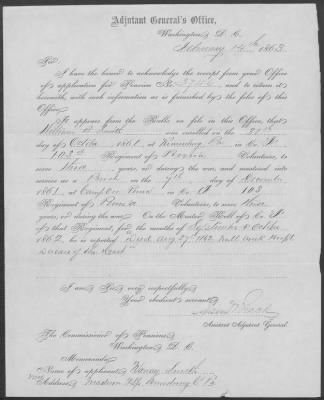 Adjutant General's Office,
Washington D. C.
February 14th 1863.
Sir:
I have the honor to acknowledge the receipt from your Office
of application for Pension No. and to return it
herewith, with such information as is furnished by the files of this
Office.
It appears from the Rolls on file in this Office, that
William Smith was enrolled on the
day of Octr 1861 at Kittanning Pa in Co.
103rd Regiment of Penna Volunteers, to
serve three years, or during the war, and mustered into
service as a on the 7th day of December
1861, at Camp in Co. 103
Regiment of Penna Volunteers, to serve three
years, or during the war. On the Muster Roll of Co.
of that Regiment, for the months of September & October
1862, he is reported "Died Aug 27th 1862
Disease of the Heart"
I am, Sir, very respectfully,
Your obedient servant,
Assistant Adjutant General.
The Commissioner of Pensions,
Washington D. C.
Memoranda
Name of applicant Nancy Smith
Address, Armstrong Co Pa